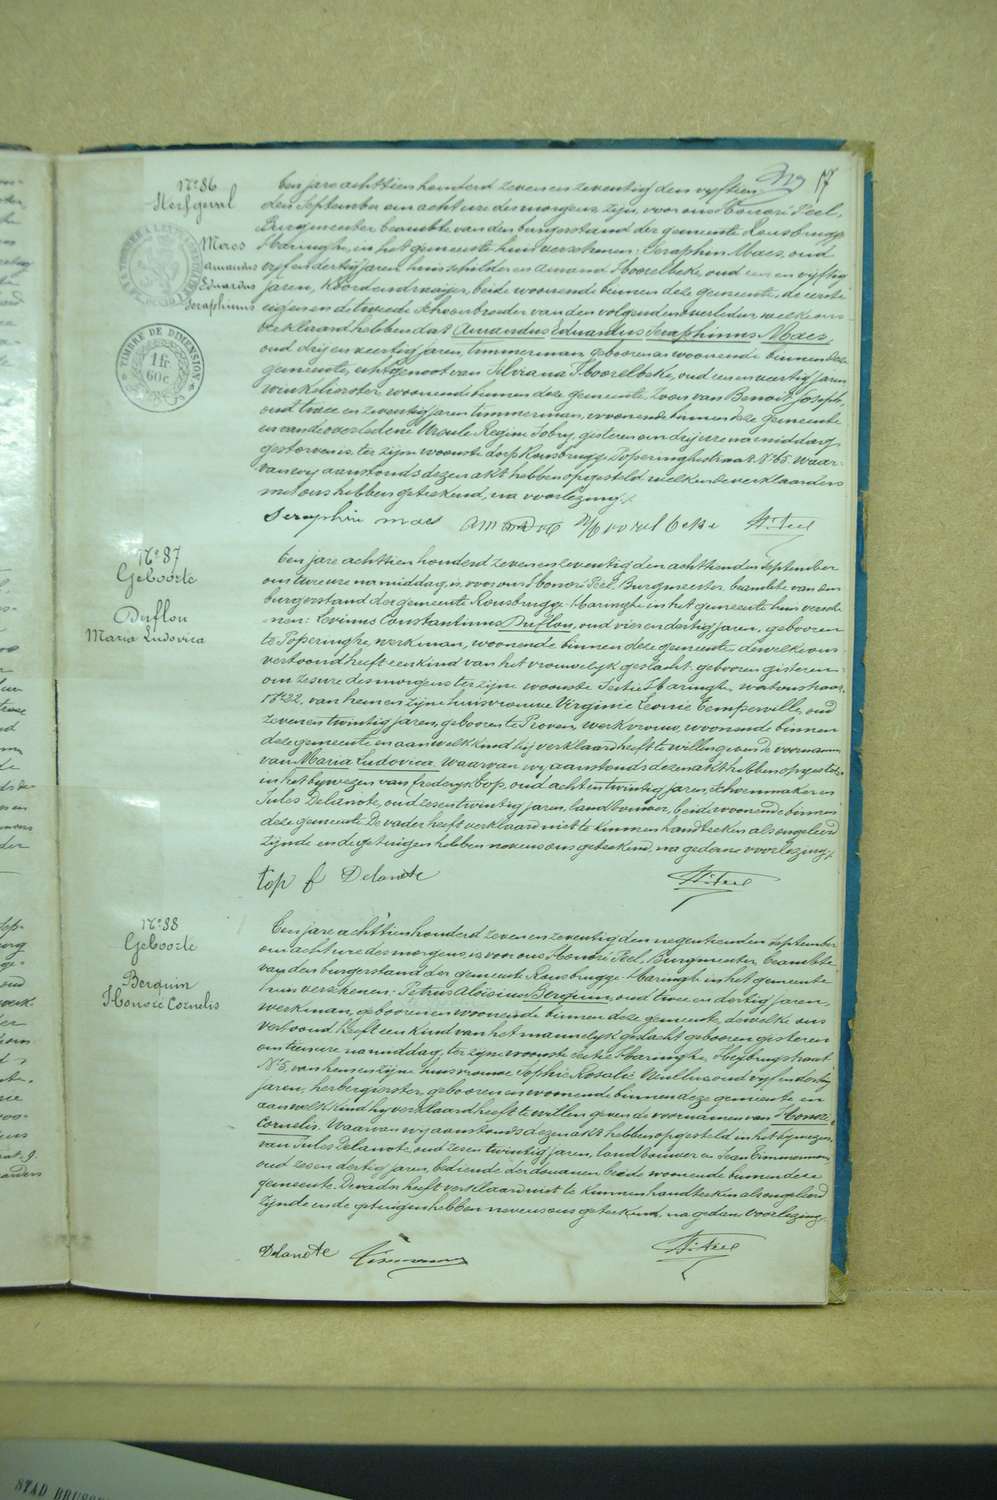 17
N° 86
Sterfgeval
Maes
Amandus
Eduardus
Seraphinus
TIMBRE DE DIMENSION
1 fr
60 c
Ten jare achttien honderd zeven en zeventig den vyftien
den September om acht ure des morgens, zijn, voor ons Honoré Peel,
Burgmeester beambte van den burgerstand der gemeente Rousbrugge
Haringhe, in het gemeente huis verschenen: Seraphin Maes, oud
vijf en dertig jaren, huisschilder en Amand Hoorelbeke, oud een en vyftig
jaren, koordendraaijer, beide woonende binnen deze gemeente, de eerste
eigen en de tweede schoonbroeder van den volgenden overleden welke ons
verklaard hebben dat Amandus Eduardus Seraphinus Maes,
oud drij en veertig jaren, timmerman, geboren en woonende binnen deze
gemeente, echtgenoot van Silviana Hoorelbeke, oud een en veertig jaren
winkelierster, woonende binnen deze gemeente, Zoon van Benoit Joseph
oud twee en zeventig jaren timmerman, woonende binnen deze gemeente
en van de overledene Ursule Regine Sobry, gisteren om drij ure namiddag
gestorven is, ter zijne woonste dorp Rousbrugge Poperinghestraat N° 65 Waar-
van wy aanstonds dezen akt hebben opgesteld welken de verklaarders
met ons hebben geteekend, na voorlezing.
Seraphin maes Amandus Hoorelbeke H. Peel
N° 87
Geboorte
Duflou
Maria Ludovica
Ten jare achttien honderd zeven en zeventig den achttienden September
om twee ure namiddag, is voor ons Honoré Peel, Burgmeester, beambte van den
burgerstand der gemeente Rousbrugge-Haringhe in het gemeente huis versche-
nen: Levinus Constantinus Duflou, oud vier en dertig jaren, geboren
te Poperinghe, werkman, woonende binnen deze gemeente dewelke ons
vertoond heeft een kind van het vrouwelyk geslacht, geboren gisteren
om zes ure des morgens ter zijne woonste Sectie Haringhe,
N° 22, van hem en zijne huisvrouw Virginie Leonie Temperville, oud
zeven en twintig jaren, geboren te Proven, werkvrouw, woonende binnen
deze gemeente en aan welk kind hij verklaard heeft te willen geven de voornamen
van Maria Ludovica. Waarvan wy aanstonds dezen akt hebben opgesteld
in het bijwezen van Frederyk Top, oud acht en twintig jaren, schoenmaker en
Jules Delanote, oud zes en twintig jaren, landbouwer, beide woonende binnen
deze gemeente De vader heeft verklaard niet te kunnen handteeken als ongeleerd
zijnde en de getuigen hebben nevens ons geteekend, na gedane voorlezing.
top f Delanote H. Peel
N° 88
Geboorte
Berquin
Honoré Cornelis
Ten jare achttien honderd zeven en zeventig den negentienden September
om acht ure des morgens, is voor ons Honoré Peel, Burgmeester, beambte
van den burgerstand der gemeente Rousbrugge-Haringhe in het gemeente
huis verschenen: Petrus Aloïsius Berquin, oud twee en dertig jaren,
werkman, geboren en woonende binnen deze gemeente, dewelke ons
vertoond heeft een kind van het mannelyk geslacht geboren gisteren
om twee ure namiddag, ter zijne woonste sectie Haringhe,
N° 5, van hem en zijne huisvrouw Sophie Rosalie Meulleus, oud vyf en dertig
jaren, herbergierster, geboren en woonende binnen deze gemeente en
aan welk kind hij verklaard heeft te willen geven de voornamen van Honoré
Cornelis. Waarvan wij aanstonds dezen akt hebben opgesteld in het bijwezen
van Jules Delanote, oud zes en twintig jaren, landbouwer en Jean Timmerman,
oud zes en dertig jaren, bediende der douanen beide woonende binnen deze
gemeente. De vader heeft verklaard niet te kunnen handteeken als ongeleerd
zijnde en de getuigen hebben nevens ons geteekend, na gedane voorlezing.
Delanote Timmerman H. Peel
STAD BRUSS